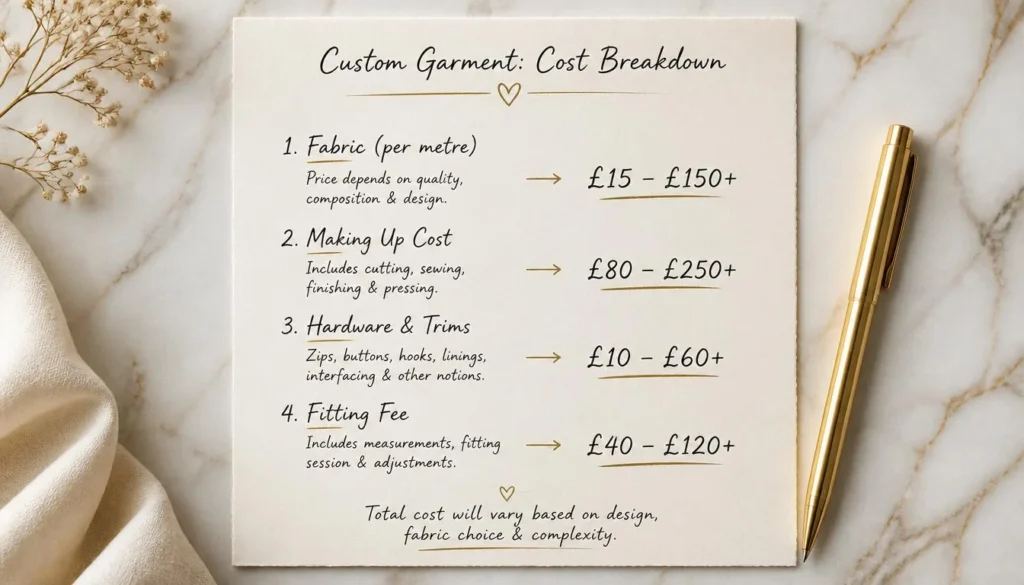 Custom Garment: Cost Breakdown
1. Fabric (per metre)
Price depends on quality,
composition & design.
→ £15 – £150+
2. Making Up Cost
Includes cutting, sewing,
finishing & pressing.
→ £80 – £250+
3. Hardware & Trims
Zips, buttons, hooks, linings,
interfacing & other notions.
→ £10 – £60+
4. Fitting Fee
Includes measurements, fitting
session & adjustments.
→ £40 – £120+
Total cost will vary based on design,
fabric choice & complexity.